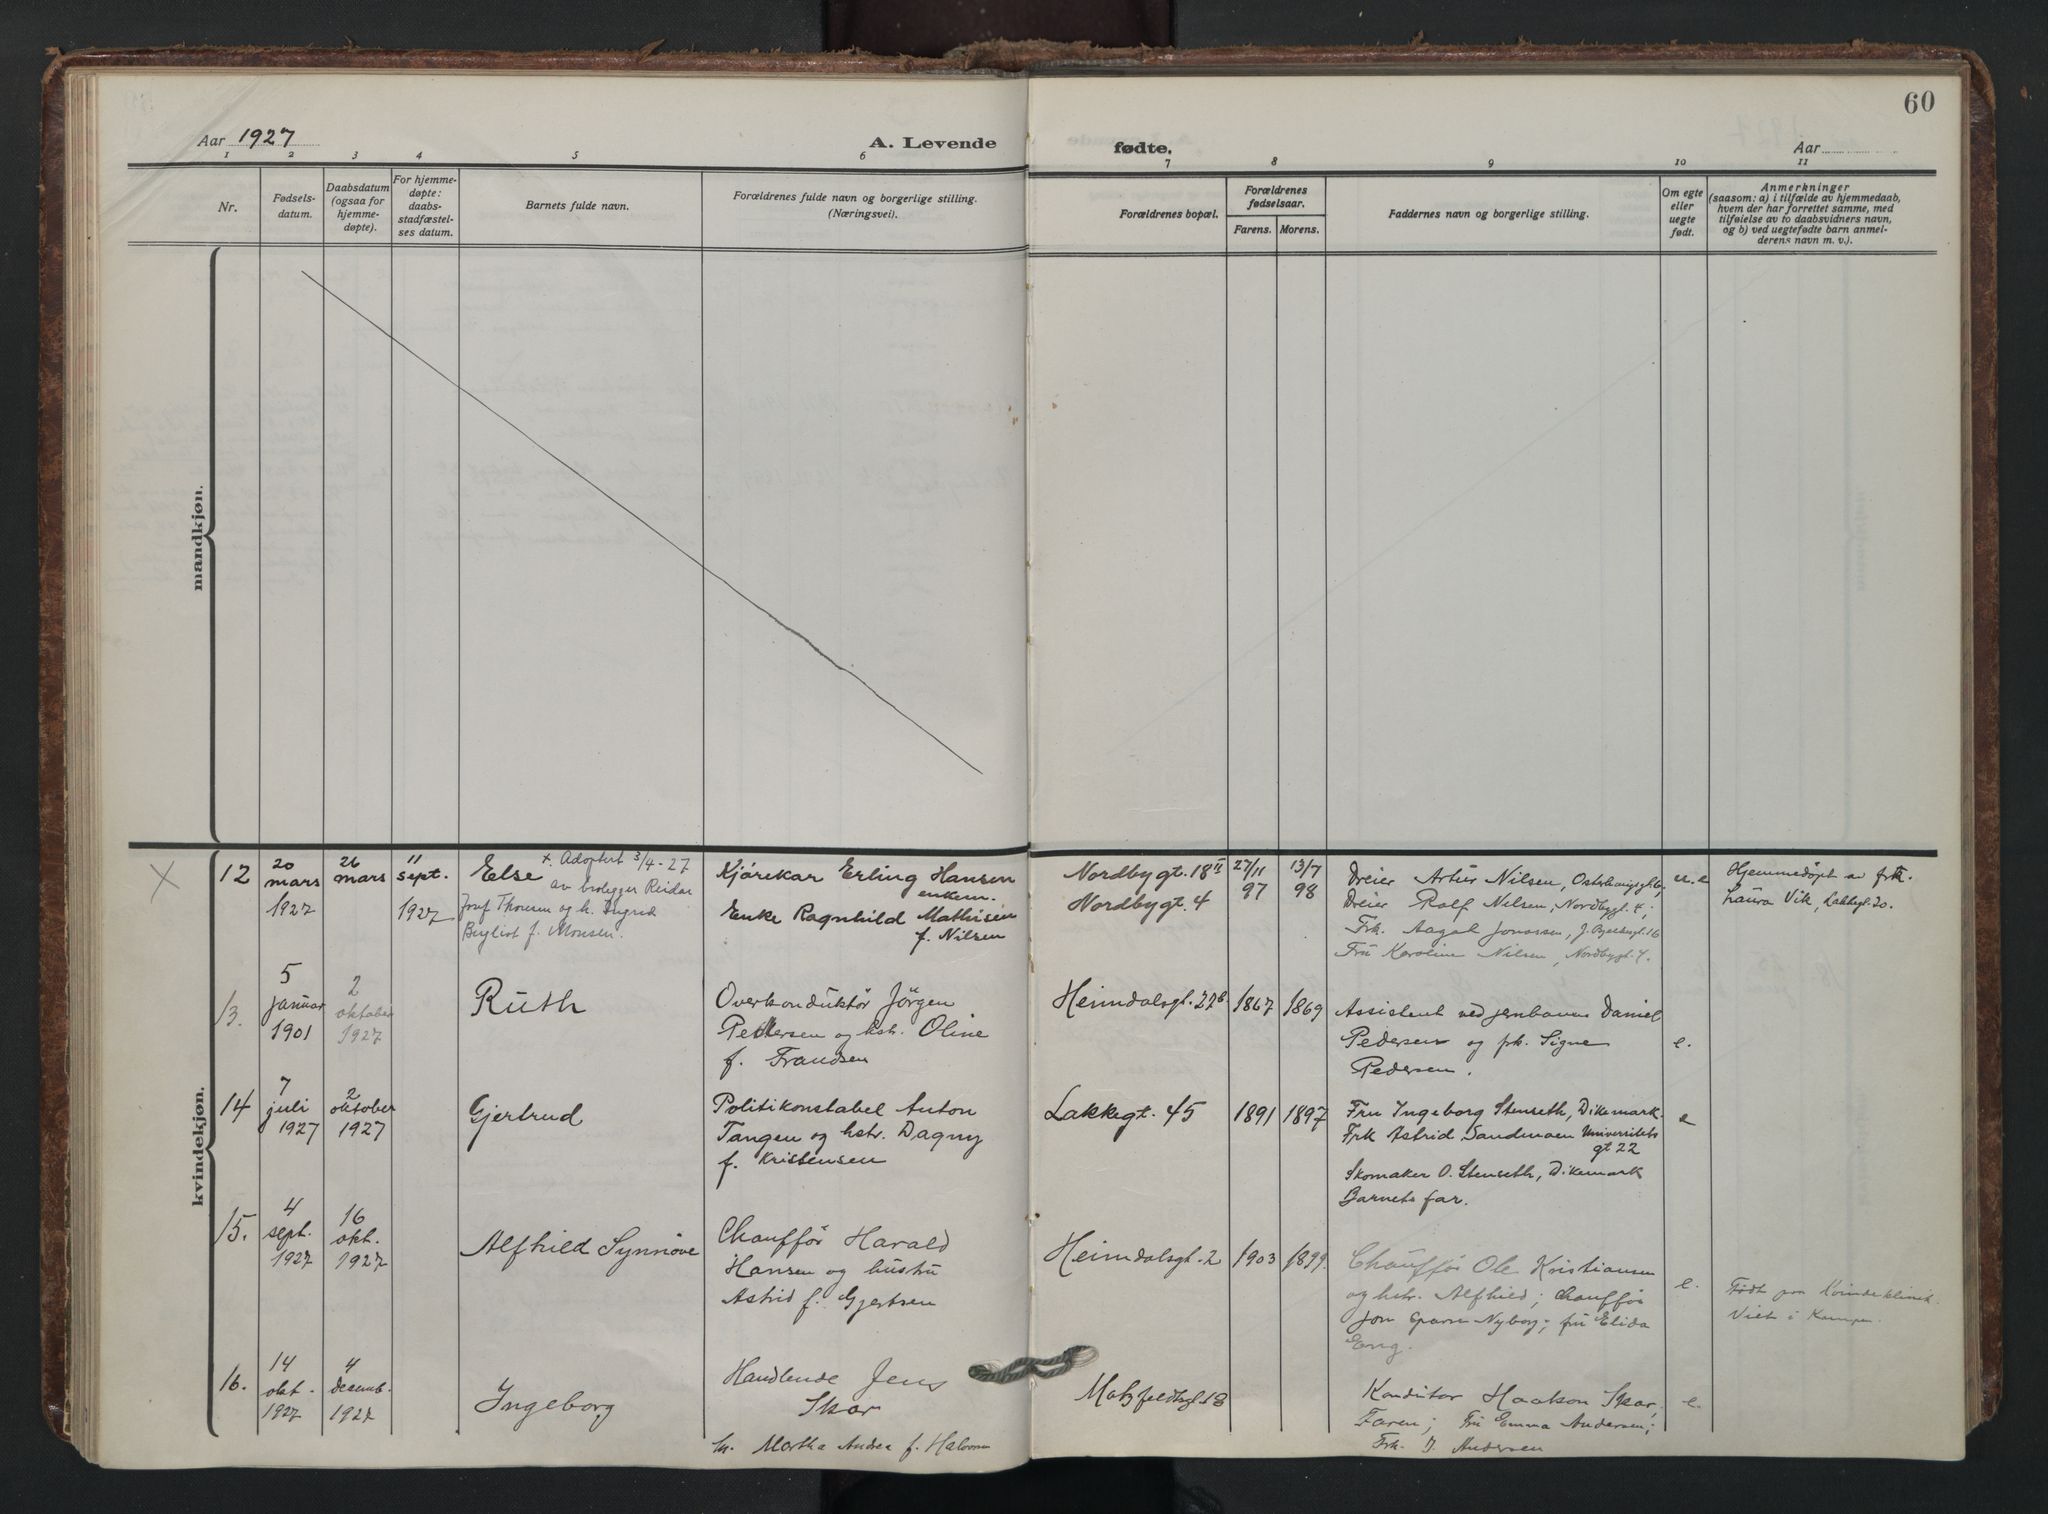 60
Aar 1927
A. Levende
fødte.
Aar
1 2 3 4 5 6 7 8 9 10 11
Nr.
Fødsels-
datum.
Daabsdatum
(ogsaa for
hjemme-
døpte).
For hjemme-
døpte:
daabs-
stadfæstel-
ses datum.
Barnets fulde navn.
Forældrenes fulde navn og borgerlige stilling.
(Næringsvei).
Forældrenes bopæl.
Forældrenes
fødselsaar.
Farens. Morens.
Faddernes navn og borgerlige stilling.
Om egte
eller
uegte
født.
Anmerkninger
(saasom: a) i tilfælde av hjemmedaab,
hvem der har forrettet samme, med
tilføielse av to daabsvidners navn,
og b) ved uegtefødte barn anmel-
derens navn m. v.).
mandkjøn.
kvindekjøn.
X
12
20
mars
1927
26
mars
11
sept.
1927
Else
+. Adoptert 3/4-27
av rørlegger Reidar
Josef Thoresen og h. Ingrid
Bergliot f. Monsen.
Kjørekar Erling Hansen
enkem.
Enke Ragnhild Mathisen
f. Nilsen
Nordbygt. 18 II
Nordbygt. 4
27/11
97
13/7
98
Dreier Artur Nilsen,
Dreier Rolf Nilsen, Nordbygt. 4;
Frk. Aagot Jonassen,
Fru Karoline Nilsen, Nordbygt. 4.
u.e
Hjemmedøpt av frk.
Laura Vik, Lakkegt. 20.
13.
5
januar
1901
2
oktober
1927
Ruth
Overkonduktør Jørgen
Pedersen og hstr. Oline
f. Frandsen
Heimdalsgt. 22b
1867
1869
Assistent ved jernbanen Daniel
Pedersen og frk. Signe
Pedersen.
e.
14
7
juli
1927
2
oktober
1927
Gjertrud
Politikonstabel Anton
Tangen og hstr. Dagny
f. Kristensen
Lakkegt. 45
1891
1897
Fru Ingeborg Stenseth, Dikemark
Frk Astrid Sandmoen Universitets
gt 22
Skomaker O. Stenseth, Dikemark
Barnets far.
e
15.
4
sept.
1927
16
okt.
1927
Alfhild Synnøve
Chauffør Harald
Hansen og hustru
Astrid f. Gjertsen
Heimdalsgt. 2
1903
1899.
Chauffør Ole Kristiansen
og hstr. Alfhild; chauffør
Jon Nyborg; fru Elida
Eng.
e.
Født paa Kvindeklinik.
Viet i Kampen.
16.
14
okt.
1927
4
decemb.
1927
Ingeborg
Handlende Jens
Skar
h. Martha Andrea f. Halvorsen
Motzfeldtsgt. 18
Konditor Haakon Skar,
Faren; Fru Emma Andersen;
Frk. J. Andersen
e.